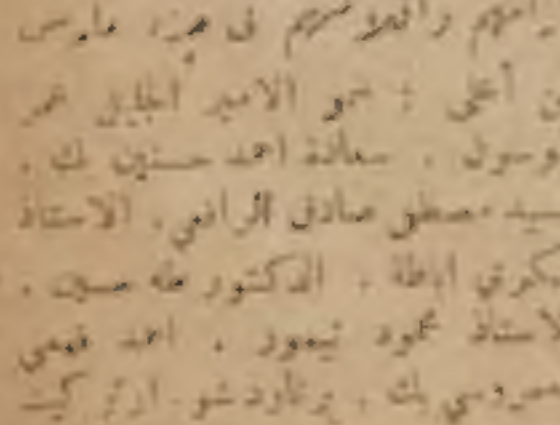 في جزء مارس
أعني : سمو الامير الجليل عمر
طوسون ، سعادة احمد حسنين بك ،
السيد مصطفى صادق الرافعي، الاستاذ
فكري اباظة ، الدكتور طه حسين ،
الاستاذ محمود تيمور ، احمد فهمي
العمروسي بك ، برنارد شو